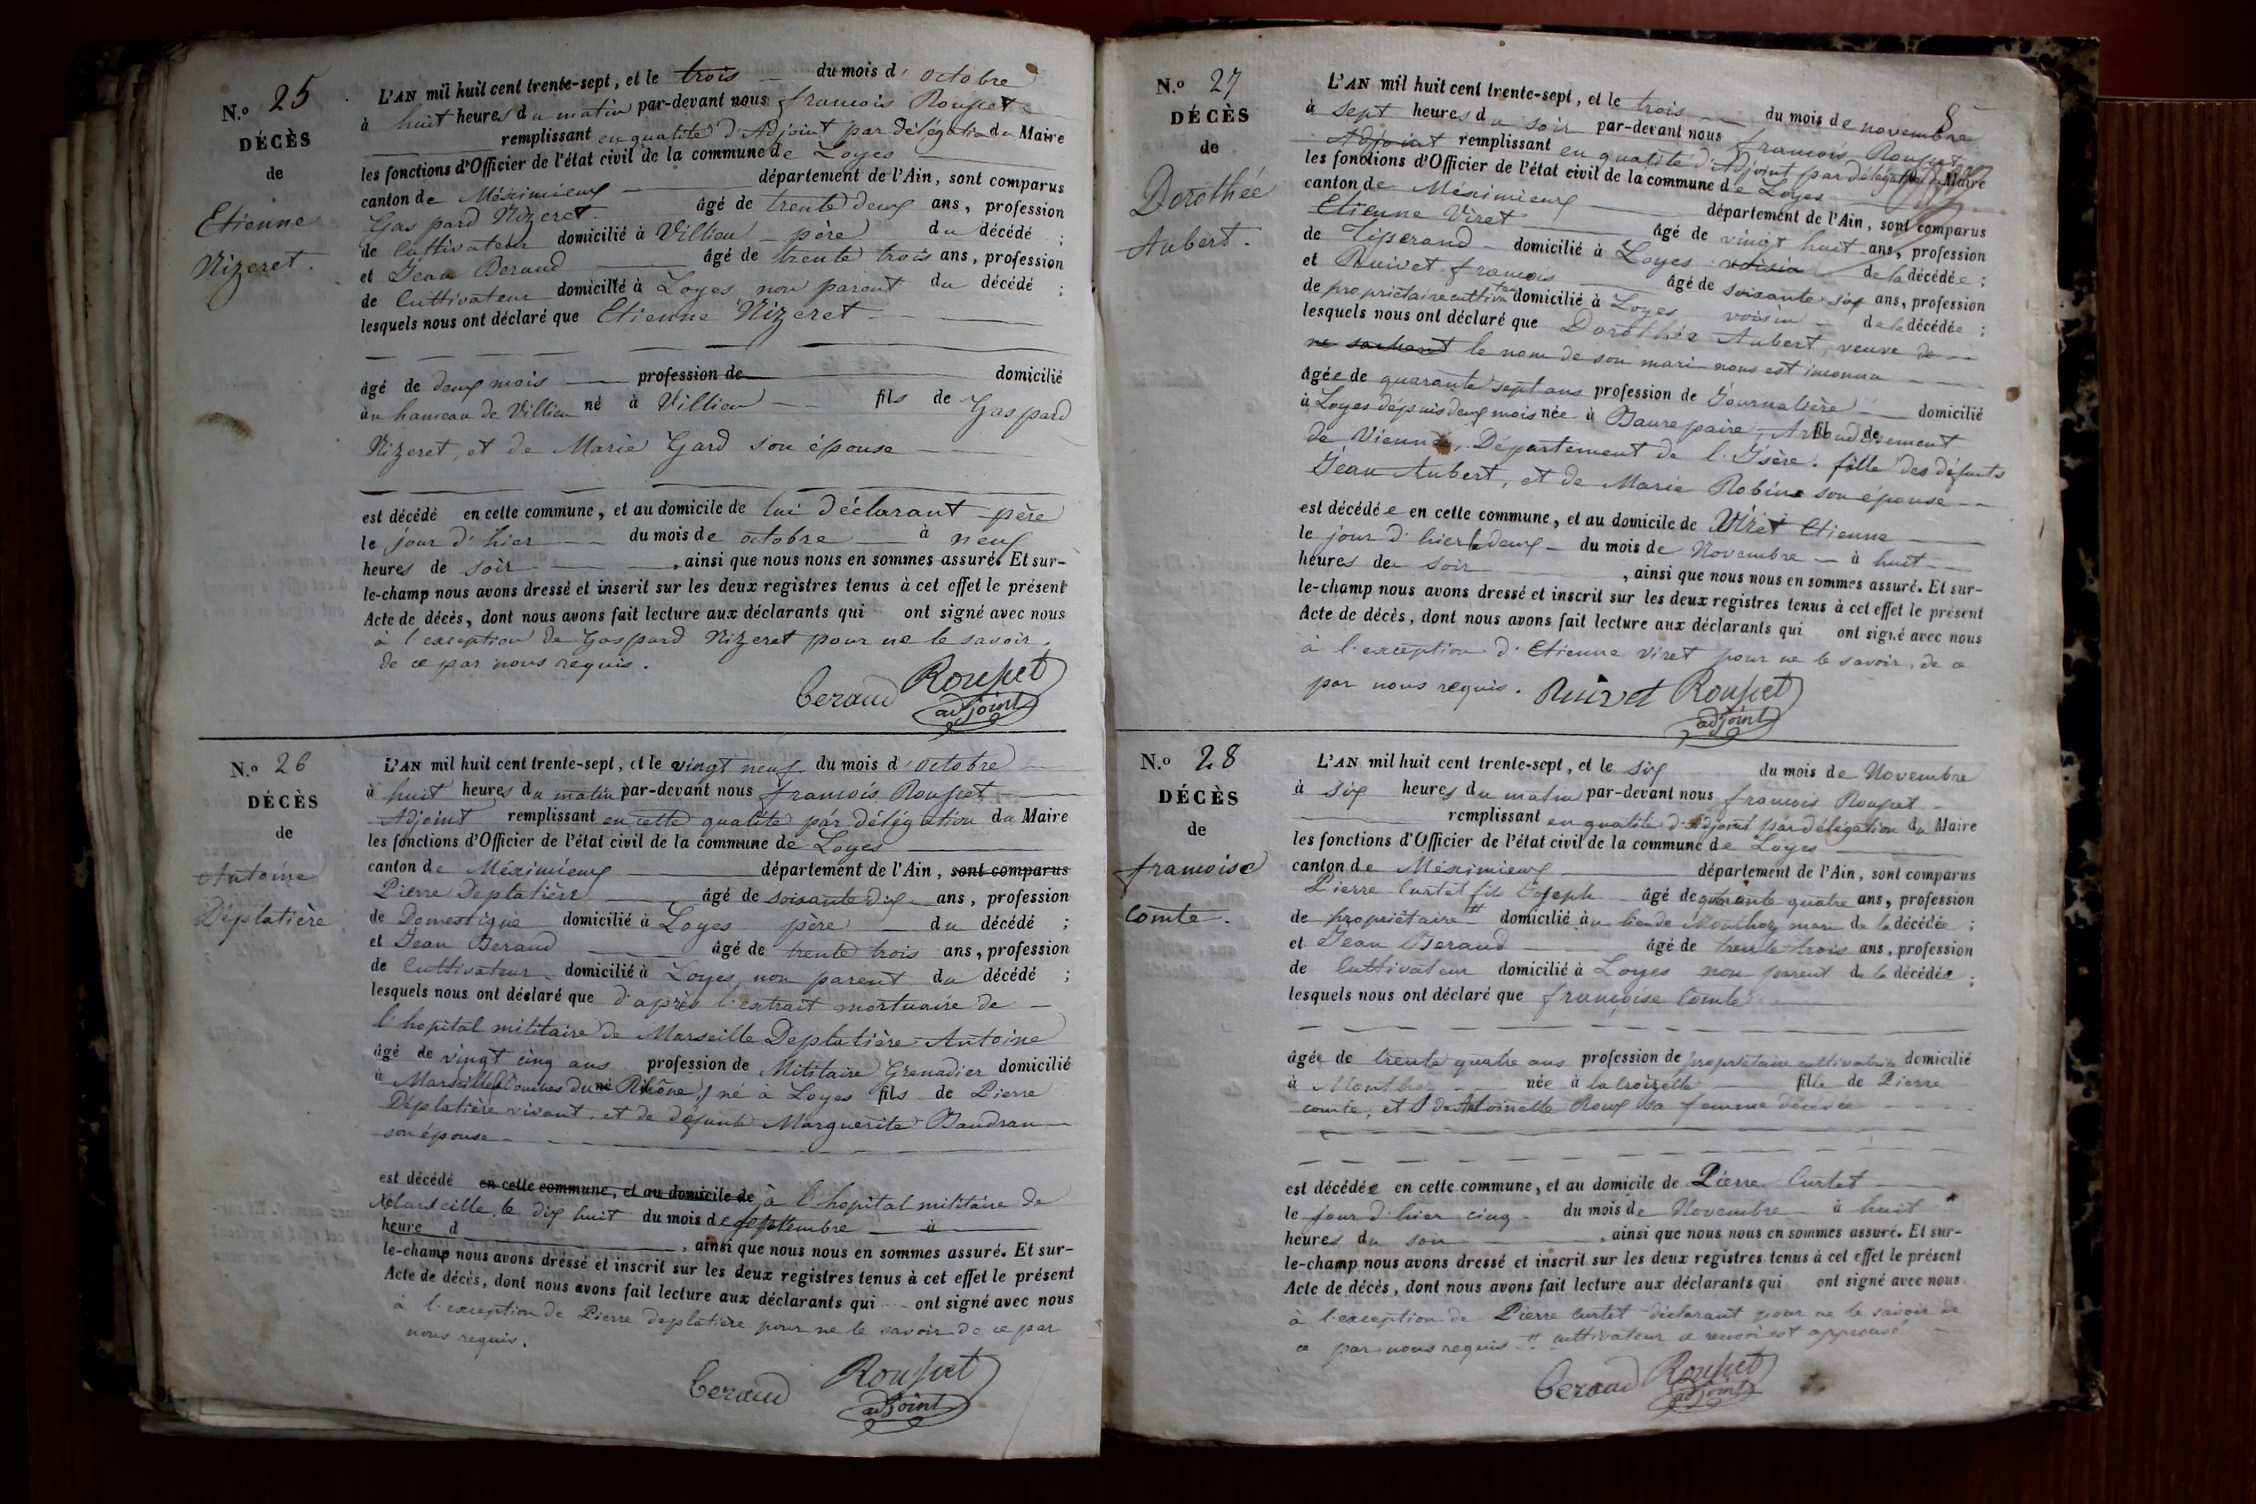 N.o 25
DÉCÈS
de
Etienne
Nizeret.
L'AN mil huit cent trente-sept, et le trois du mois d'octobre
à huit heures du matin par-devant nous francois Rouset
remplissant en qualité d'Adjoint par délégation du Maire
les fonctions d'Officier de l'état civil de la commune de Loyes
canton de Méximieux département de l'Ain, sont comparus
Gaspard Nizeret. âgé de trente deux ans, profession
de Cultivateur domicilié à Villieu père du décédé ;
et Jean Beraud âgé de trente trois ans, profession
de Cultivateur domicilié à Loyes non parent du décédé ;
lesquels nous ont déclaré que Etienne Nizeret
âgé de deux mois profession de domicilié
au hameau de Villieu né à Villieu fils de Gaspard
Nizeret, et de Marie Gard son épouse
est décédé en cette commune, et au domicile de lui déclarant père
le jour d'hier du mois de octobre à neuf
heures de soir , ainsi que nous nous en sommes assuré. Et sur-
le-champ nous avons dressé et inscrit sur les deux registres tenus à cet effet le présent
Acte de décès, dont nous avons fait lecture aux déclarants qui ont signé avec nous
à l'exception de Gaspard Nizeret pour ne le savoir,
de ce par nous requis.
Beraud Rouset
adjoint
N.o 26
DÉCÈS
de
Antoine
Déplatière
L'AN mil huit cent trente-sept, et le vingt neuf du mois d'octobre
à huit heures du matin par-devant nous francois Rouset
Adjoint remplissant en cette qualité par délégation du Maire
les fonctions d'Officier de l'état civil de la commune de Loyes
canton de Méximieux département de l'Ain, sont comparus
Pierre Deplatière âgé de soixante dix ans, profession
de Domestique domicilié à Loyes père du décédé ;
et Jean Beraud âgé de trente trois ans, profession
de Cultivateur domicilié à Loyes non parent du décédé ;
lesquels nous ont déclaré que d'après l'extrait mortuaire de
l'hopital militaire de Marseille Deplatière Antoine
âgé de vingt cinq ans profession de Militaire Grenadier domicilié
à Marseille (Bouches du né Rhône) né à Loyes fils de Pierre
Déplatière vivant, et de défunte Marguerite Baudran
son épouse
est décédé en cette commune, et au domicile de à l'hopital militaire de
Marseille le dix huit du mois de septembre à
heure d , ainsi que nous nous en sommes assuré. Et sur-
le-champ nous avons dressé et inscrit sur les deux registres tenus à cet effet le présent
Acte de décès, dont nous avons fait lecture aux déclarants qui ont signé avec nous
à l'exception de Pierre deplatière pour ne le savoir de ce par
nous requis.
Beraud Rouset
adjoint
8
N.o 27
DÉCÈS
de
Dorothée
Aubert.
L'AN mil huit cent trente-sept, et le trois du mois de novembre
à sept heures du soir par-devant nous francois Rouset
Adjoint remplissant en qualité d'Adjoint par délégation du Maire
les fonctions d'Officier de l'état civil de la commune de Loyes
canton de Méximieux département de l'Ain, sont comparus
Etienne Viret âgé de vingt huit ans, profession
de Tisserand domicilié à Loyes voisin de la décédée ;
et Ruivet francois âgé de soixante six ans, profession
de propriétaire cultivateur domicilié à Loyes voisin de la décédée ;
lesquels nous ont déclaré que Dorothée Aubert, veuve de
ne sachant le nom de son mari nous est inconnu
âgée de quarante sept ans profession de Journalière domicilié
à Loyes depuis deux mois née à Baurepaire, Arrondissement fil de
de Vienne, Département de l'Isère. fille des défunts
Jean Aubert, et de Marie Robine son épouse
est décédée en cette commune, et au domicile de Viret Etienne
le jour d'hier le deux du mois de Novembre à huit
heures de soir , ainsi que nous nous en sommes assuré. Et sur-
le-champ nous avons dressé et inscrit sur les deux registres tenus à cet effet le présent
Acte de décès, dont nous avons fait lecture aux déclarants qui ont signé avec nous
à l'exception d'Etienne Viret pour ne le savoir, de ce
par nous requis. Ruivet Rouset
adjoint
N.o 28
DÉCÈS
de
francoise
Comte.
L'AN mil huit cent trente-sept, et le six du mois de Novembre
à six heures du matin par-devant nous francois Rouset
remplissant en qualité d'Adjoint par délégation du Maire
les fonctions d'Officier de l'état civil de la commune de Loyes
canton de Méximieux département de l'Ain, sont comparus
Pierre Curtet fils Joseph âgé de quarante quatre ans, profession
de propriétaire domicilié au lieu de Monthoz mari de la décédée ;
et Jean Beraud âgé de trente trois ans, profession
de Cultivateur domicilié à Loyes non parent de la décédée ;
lesquels nous ont déclaré que françoise Comte
âgée de trente quatre ans profession de propriétaire cultivatrice domicilié
à Monthoz née à la Croizette fille de Pierre
comte, et de Antoinette Roux sa femme décédée
est décédée en cette commune, et au domicile de Pierre Curtet
le jour d'hier cinq du mois de Novembre à huit
heures du soir , ainsi que nous nous en sommes assuré. Et sur-
le-champ nous avons dressé et inscrit sur les deux registres tenus à cet effet le présent
Acte de décès, dont nous avons fait lecture aux déclarants qui ont signé avec nous
à l'exception de Pierre Curtet déclarant pour ne le savoir de
ce par nous requis # cultivateur ce renvoi est approuvé
Beraud Rouset
adjoint